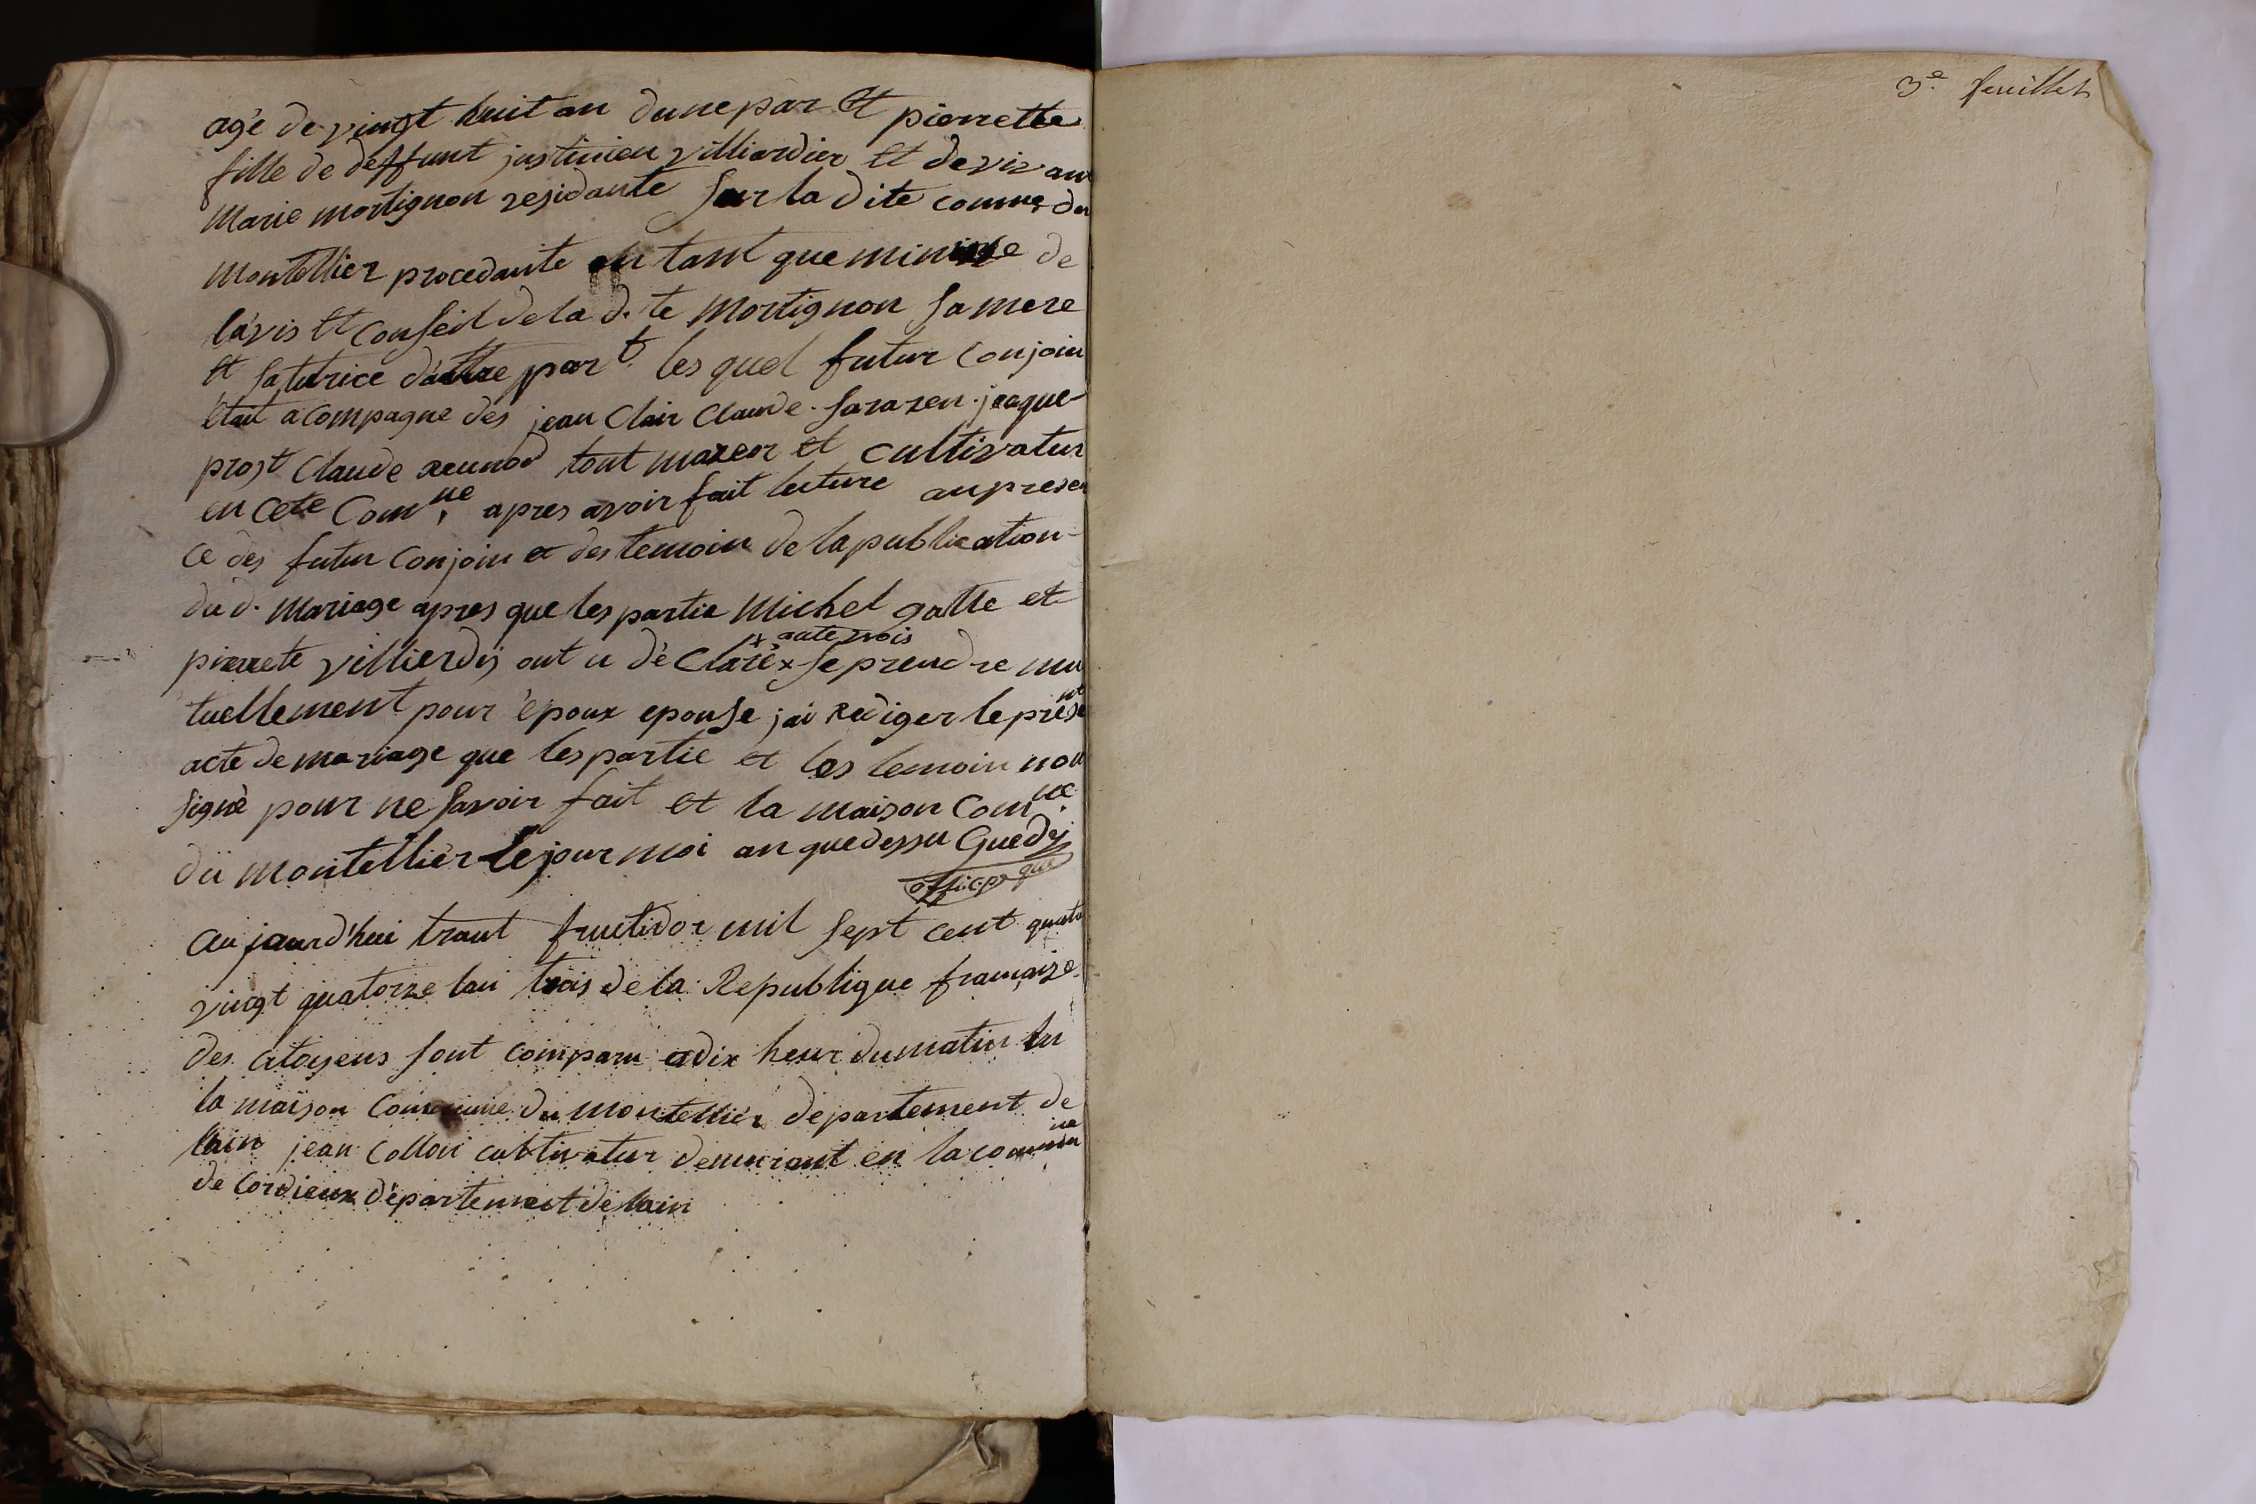 agé de vingt huit an dune par Et pierrette
fille de deffunt justinien villiardier Et de vivan
Marie mortignon residante sur la dite comne du
Montellier procedante en tant que mineure de
lavis Et Conseil de la d. te Mortignon sa mere
et sa tutrice dautre part. les quel futur Conjoin
Etait acompagne des jean Clair Claude Sarazen jeaque
prost Claude renod tout majeor et cultivatur
en Cete Comne. apres avoir fait lecture aupresen
ce des futur Conjoin et des temoin de la publication
du d. Mariage apres que les partie Michel gatte et
x aute vois
pierrete villierdij ont u déClaré x se prendre mu
tuellement pour époux epouse jai Rediger le présent
acte de mariage que les partie et les temoin non
signé pour ne savoir fait et la maison Comne.
du Montellier le jour moi an que dessu Guedy
offic. pque
aujourd'hui trant fructidor mil sept cent quatre
vingt quatorze lan trois de la Republique française
des citoyens sont comparu a dix heur du matin En
la maison Commune du Montellier departement de
lain jean Collon cultivatur demeurant en la commune
de Cordieux département de lain
3e. feuillet